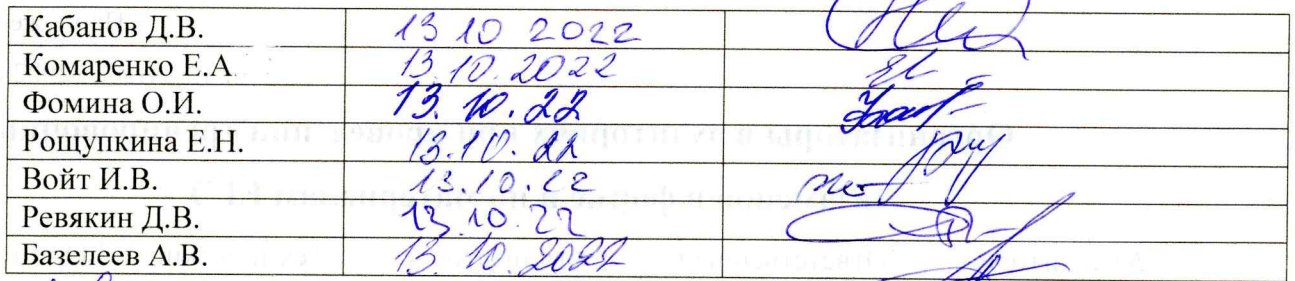 Кабанов Д.В. 13 10 2022
Комаренко Е.А 13.10.2022
Фомина О.И. 13.10.22
Рощупкина Е.Н. 13.10.22
Войт И.В. 13.10.22
Ревякин Д.В. 13.10.22
Базелеев А.В. 13.10.2022